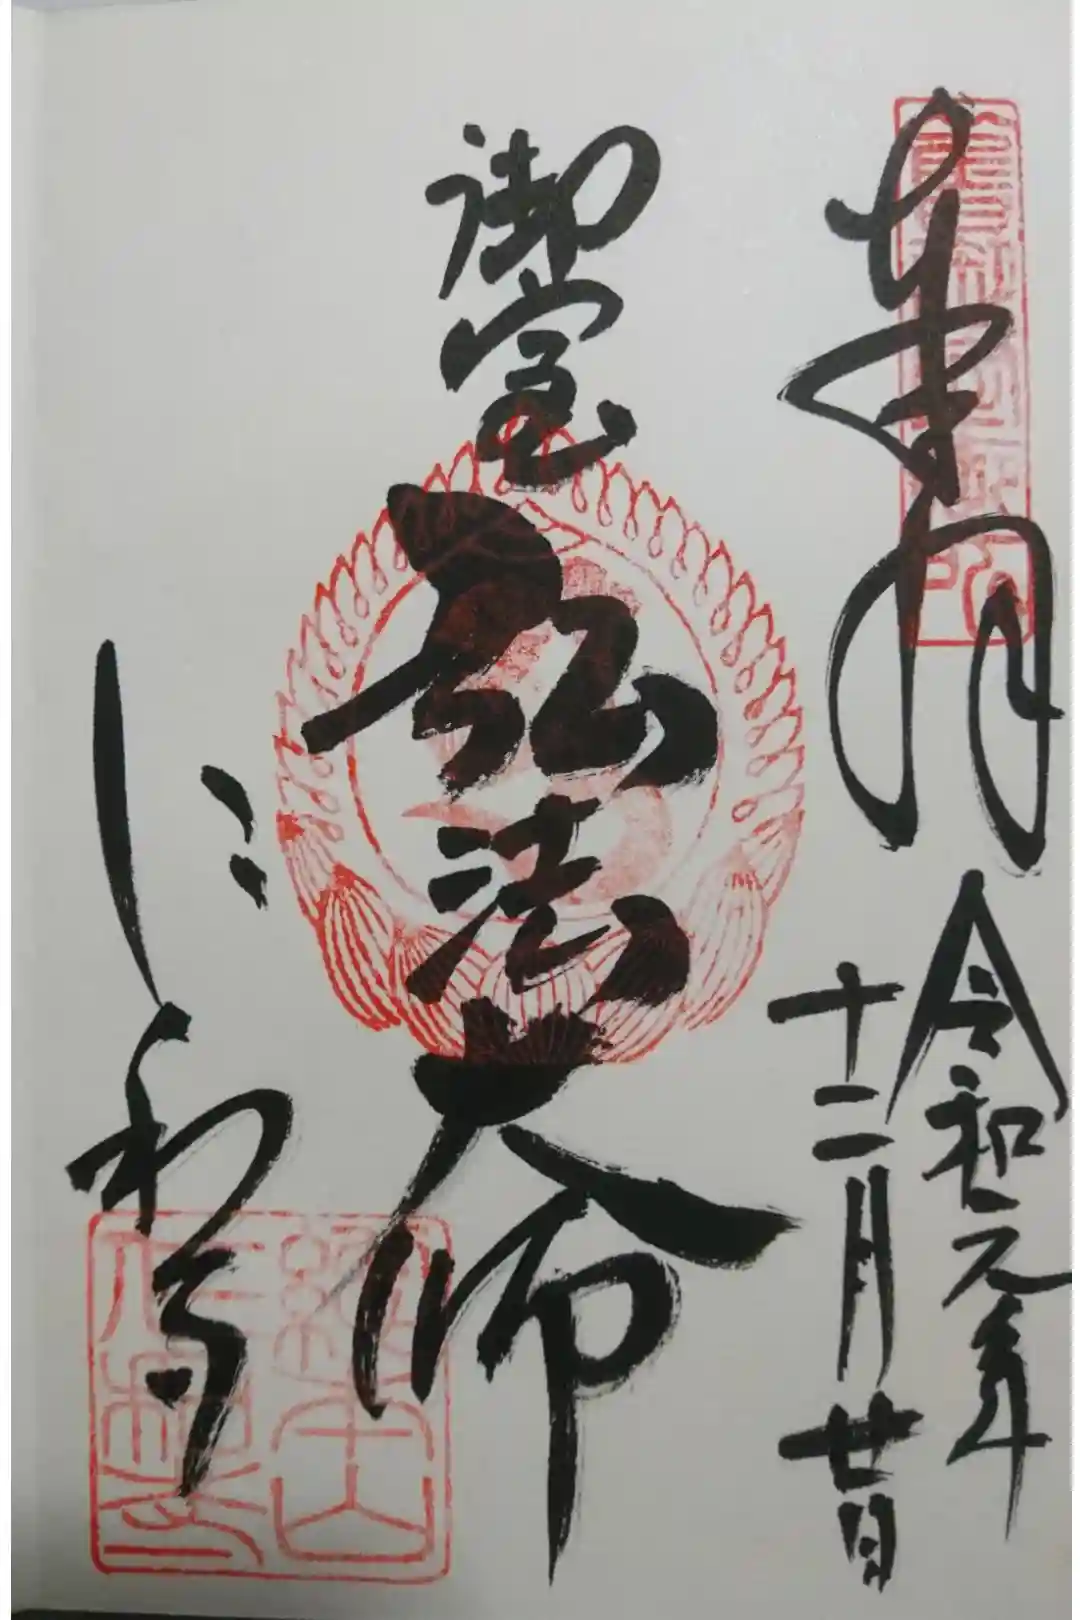 奉拝
令和元年
十二月廿日
御室
弘法大師
仁和寺